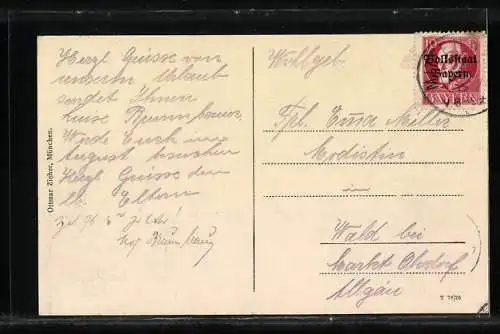 Herzl Grüsse von
unserem Urlaub
sendet Ihnen
Luise
Werde Euch im
August besuchen
Herzl Grüsse den
lb. Eltern
Wohlgeb.
Frl. Emma Miller
Modistin
in
Wald bei
Markt Oberdorf
Allgäu
Volksstaat
Bayern
BAYERN
Ottmar Zieher, München.